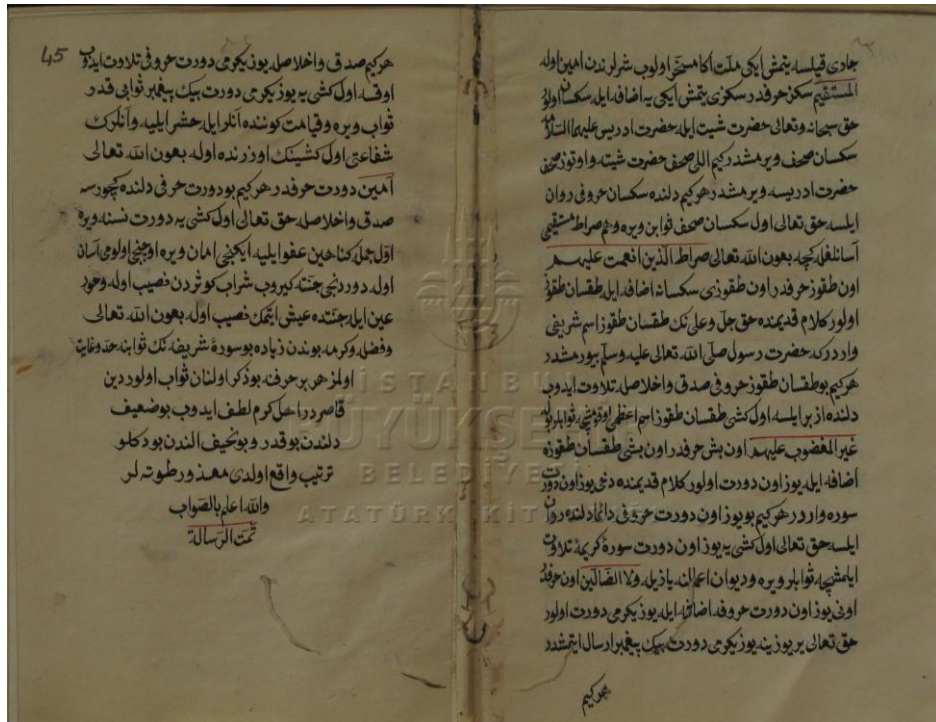 جاری قیلسه یتمش ایکی ملت اکا مسخر اولوب شرلرندن امین اوله
المستقیم سکز حرفدر سکزی یتمش ایکی یه اضافه ایله سکسان اولور
حق سبحانه وتعالی حضرت شیت ایله حضرت ادریس علیهما السلامه
سکسان صحف ویرمشدر کیم اللی صحف حضرت شیته واوتوز صحف
حضرت ادریسه ویرمشدر هرکیم دلنده سکسان حروفی روان
ایلسه حق تعالی اول سکسان صحف ثوابن ویره وهم صراط مستقیمی
آسانلغله کچه بعون الله تعالی صراط الذین انعمت علیهم
اون طقوز حرفدر اون طقوزی سکسانه اضافه ایله طقسان طقوز
اولور کلام قدیمنده حق جل وعلی نک طقسان طقوز اسم شریفی
واردرکه حضرت رسول صلی الله تعالی علیه وسلم بیورمشدر
هرکیم بو طقسان طقوز حروفی صدق واخلاصله تلاوت ایدوب
دلنده ازبر ایلسه اول کشی طقسان طقوز اسم اعظمی اوقومشجه ثوابلر بوله
غیر المغضوب علیهم اون بش حرفدر اون بشی طقسان طقوزه
اضافه ایله یوز اون دورت اولور کلام قدیمنده دخی یوز اون دورت
سوره واردر هرکیم بو یوز اون دورت حروفی دائما دلنده روان
ایلسه حق تعالی اول کشی یه یوز اون دورت سورۀ کریمه تلاوت
ایلمشجه ثوابلر ویره ودیوان اعمالنه یازیله ولا الضالین اون حرفدر
اونی یوز اون دورت حروفه اضافه ایله یوز یکرمی دورت اولور
حق تعالی یر یوزینه یوز یکرمی دورت بیک پیغمبر ارسال ایتمشدر
هرکیم
45
هرکیم صدق واخلاصله یوز یکرمی دورت حروفی تلاوت ایدوب
اوقسه اول کشی یه یوز یکرمی دورت بیک پیغمبر ثوابی قدر
ثواب ویره وقیامت کوننده آنلر ایله حشر ایلیه وآنلرک
شفاعتی اول کشینک اوزرنده اوله بعون الله تعالی
آمین دورت حرفدر هرکیم بو دورت حرفی دلنده کچورسه
صدق واخلاصله حق تعالی اول کشی یه دورت نسنه ویره
اول جمله کناهین عفو ایلیه ایکنجی امان ویره اوچنجی اولومی آسان
اوله دوردنجی جنته کیروب شراب کوثردن نصیب اوله وحور
عین ایله جنتده عیش ایتمک نصیب اوله بعون الله تعالی
وفضله وکرمه بوندن زیاده بو سورۀ شریفه نک ثوابنه حد وغایت
اولمز هر بر حرفنه بو ذکر اولنان ثواب اولور دین
قاصردر اهل کرم لطف ایدوب بو ضعیف
دلندن بو قدر وبو نحیف الندن بو دکلو
ترتیب واقع اولدی معذور طوته لر
والله اعلم بالصواب
تمت الرسالة
İSTANBUL
BÜYÜKŞEHİR
BELEDİYESİ
ATATÜRK KİTAPLIĞI